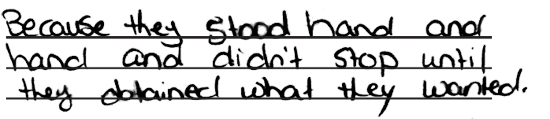 Because they stood hand and
hand and didn't stop until
they obtained what they wanted.